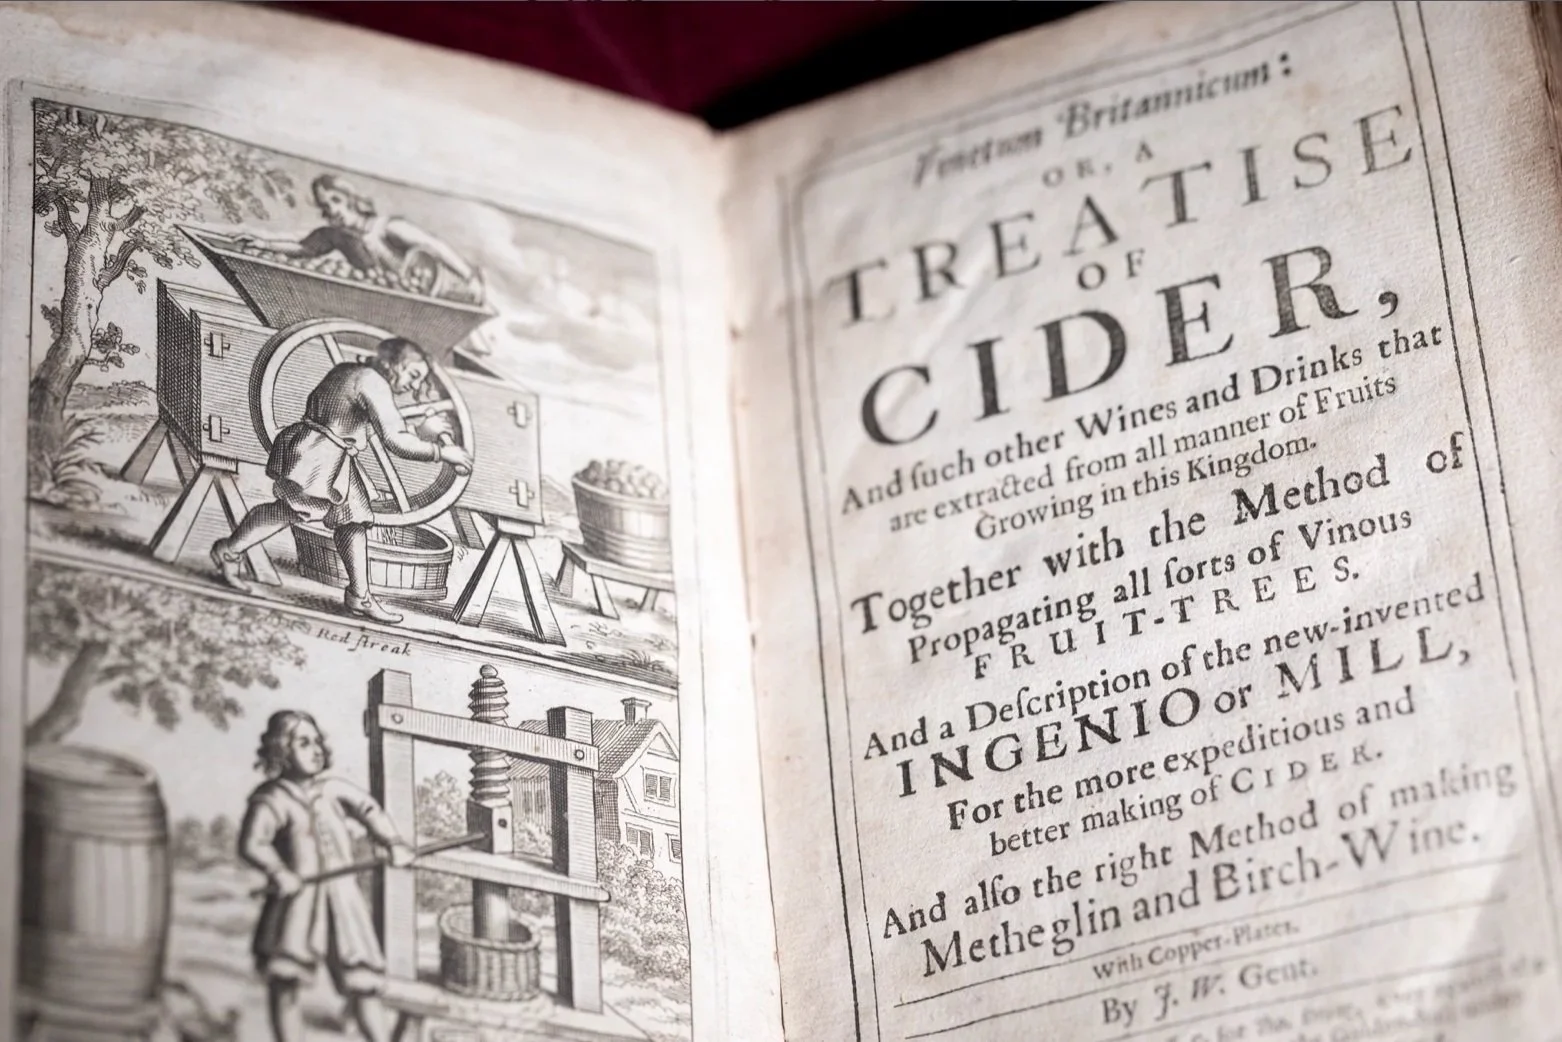 Red ſtreak
Vinetum Britannicum:
OR, A
TREATISE
OF
CIDER,
And ſuch other Wines and Drinks that
are extracted from all manner of Fruits
Growing in this Kingdom.
Together with the Method of
Propagating all ſorts of Vinous
FRUIT-TREES.
And a Deſcription of the new-invented
INGENIO or MILL,
For the more expeditious and
better making of CIDER.
And alſo the right Method of making
Metheglin and Birch-Wine.
With Copper-Plates.
By J. W. Gent.